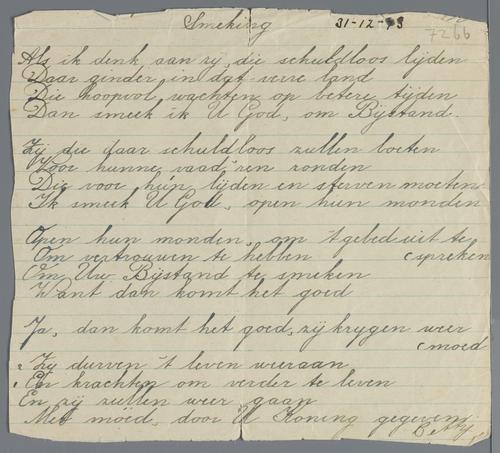 Smeking 31-12-43
7266
Als ik denk aan zij, die schuldloos lijden
Daar ginder in dat verre land
Die hoopvol wachten op betere tijden
Dan smeek ik U God, om Bijstand.
Zij die daar schuldloos zullen boeten
Voor hunne vaad'ren zonden
Die voor hun lijden en sterven moeten
Ik smeek U God, open hun monden
Open hun monden, om 't gebed uit te
(spreken
Om vertrouwen te hebben
Om Uw Bijstand te smeken
Want dan komt het goed
Ja, dan komt het goed, zij krygen weer
(moed
Zy durven 't leven weer aan
En krachten om verder te leven
En zij zullen weer gaan
Met moed, door U Koning gegeven
Betty